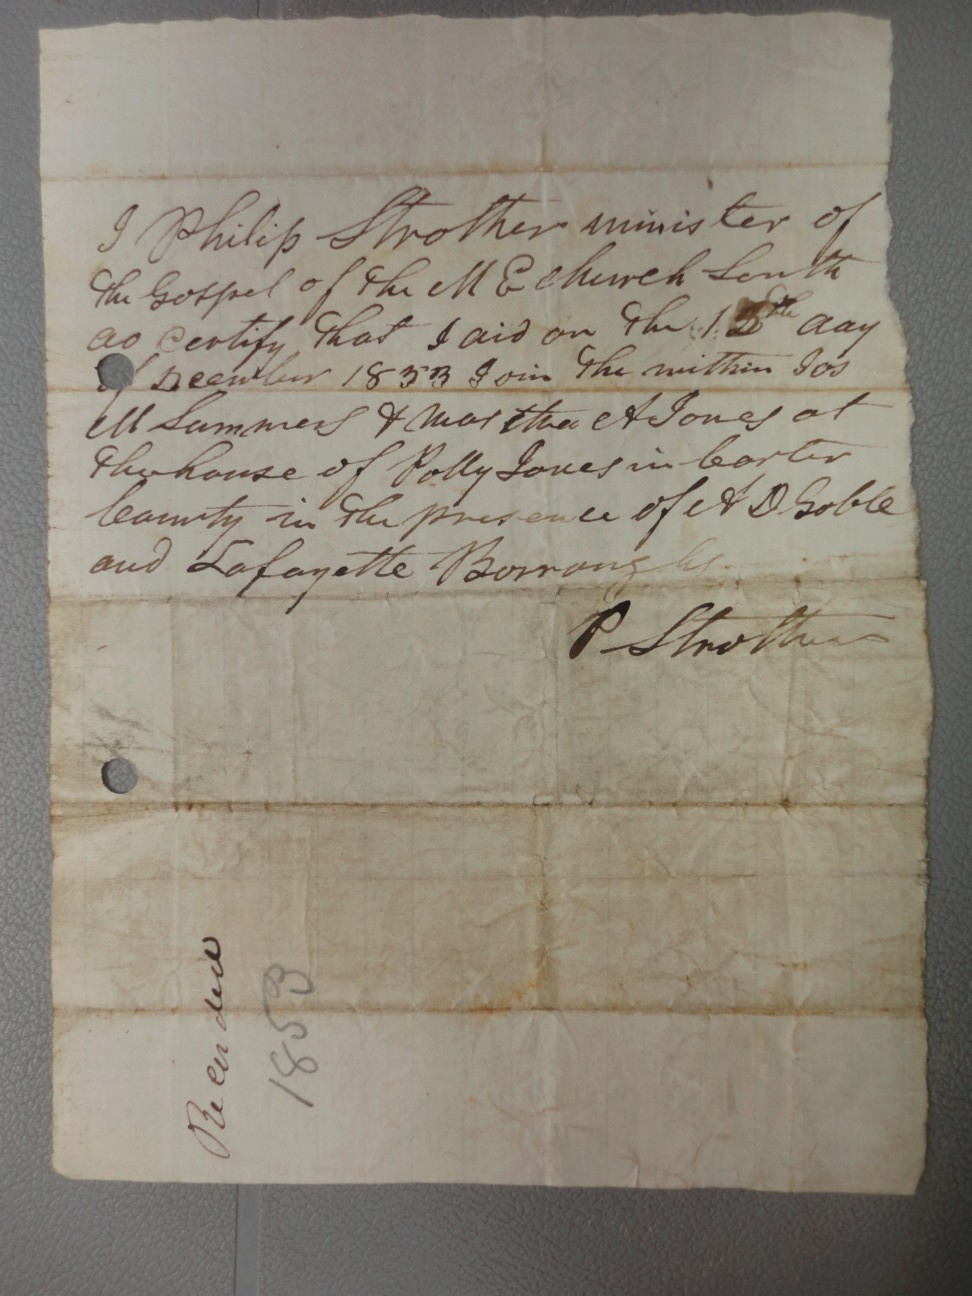 I Philip Strother minister of
the Gospel of the M E Church South
do certify that I did on the day
of December 1853 Join the within Jos
M Summers & Martha A Jones at
the house of Polly Jones in Carter
County in the presence of A D Goble
and Lafayette Borroughs
P Strother
Recorded
1853